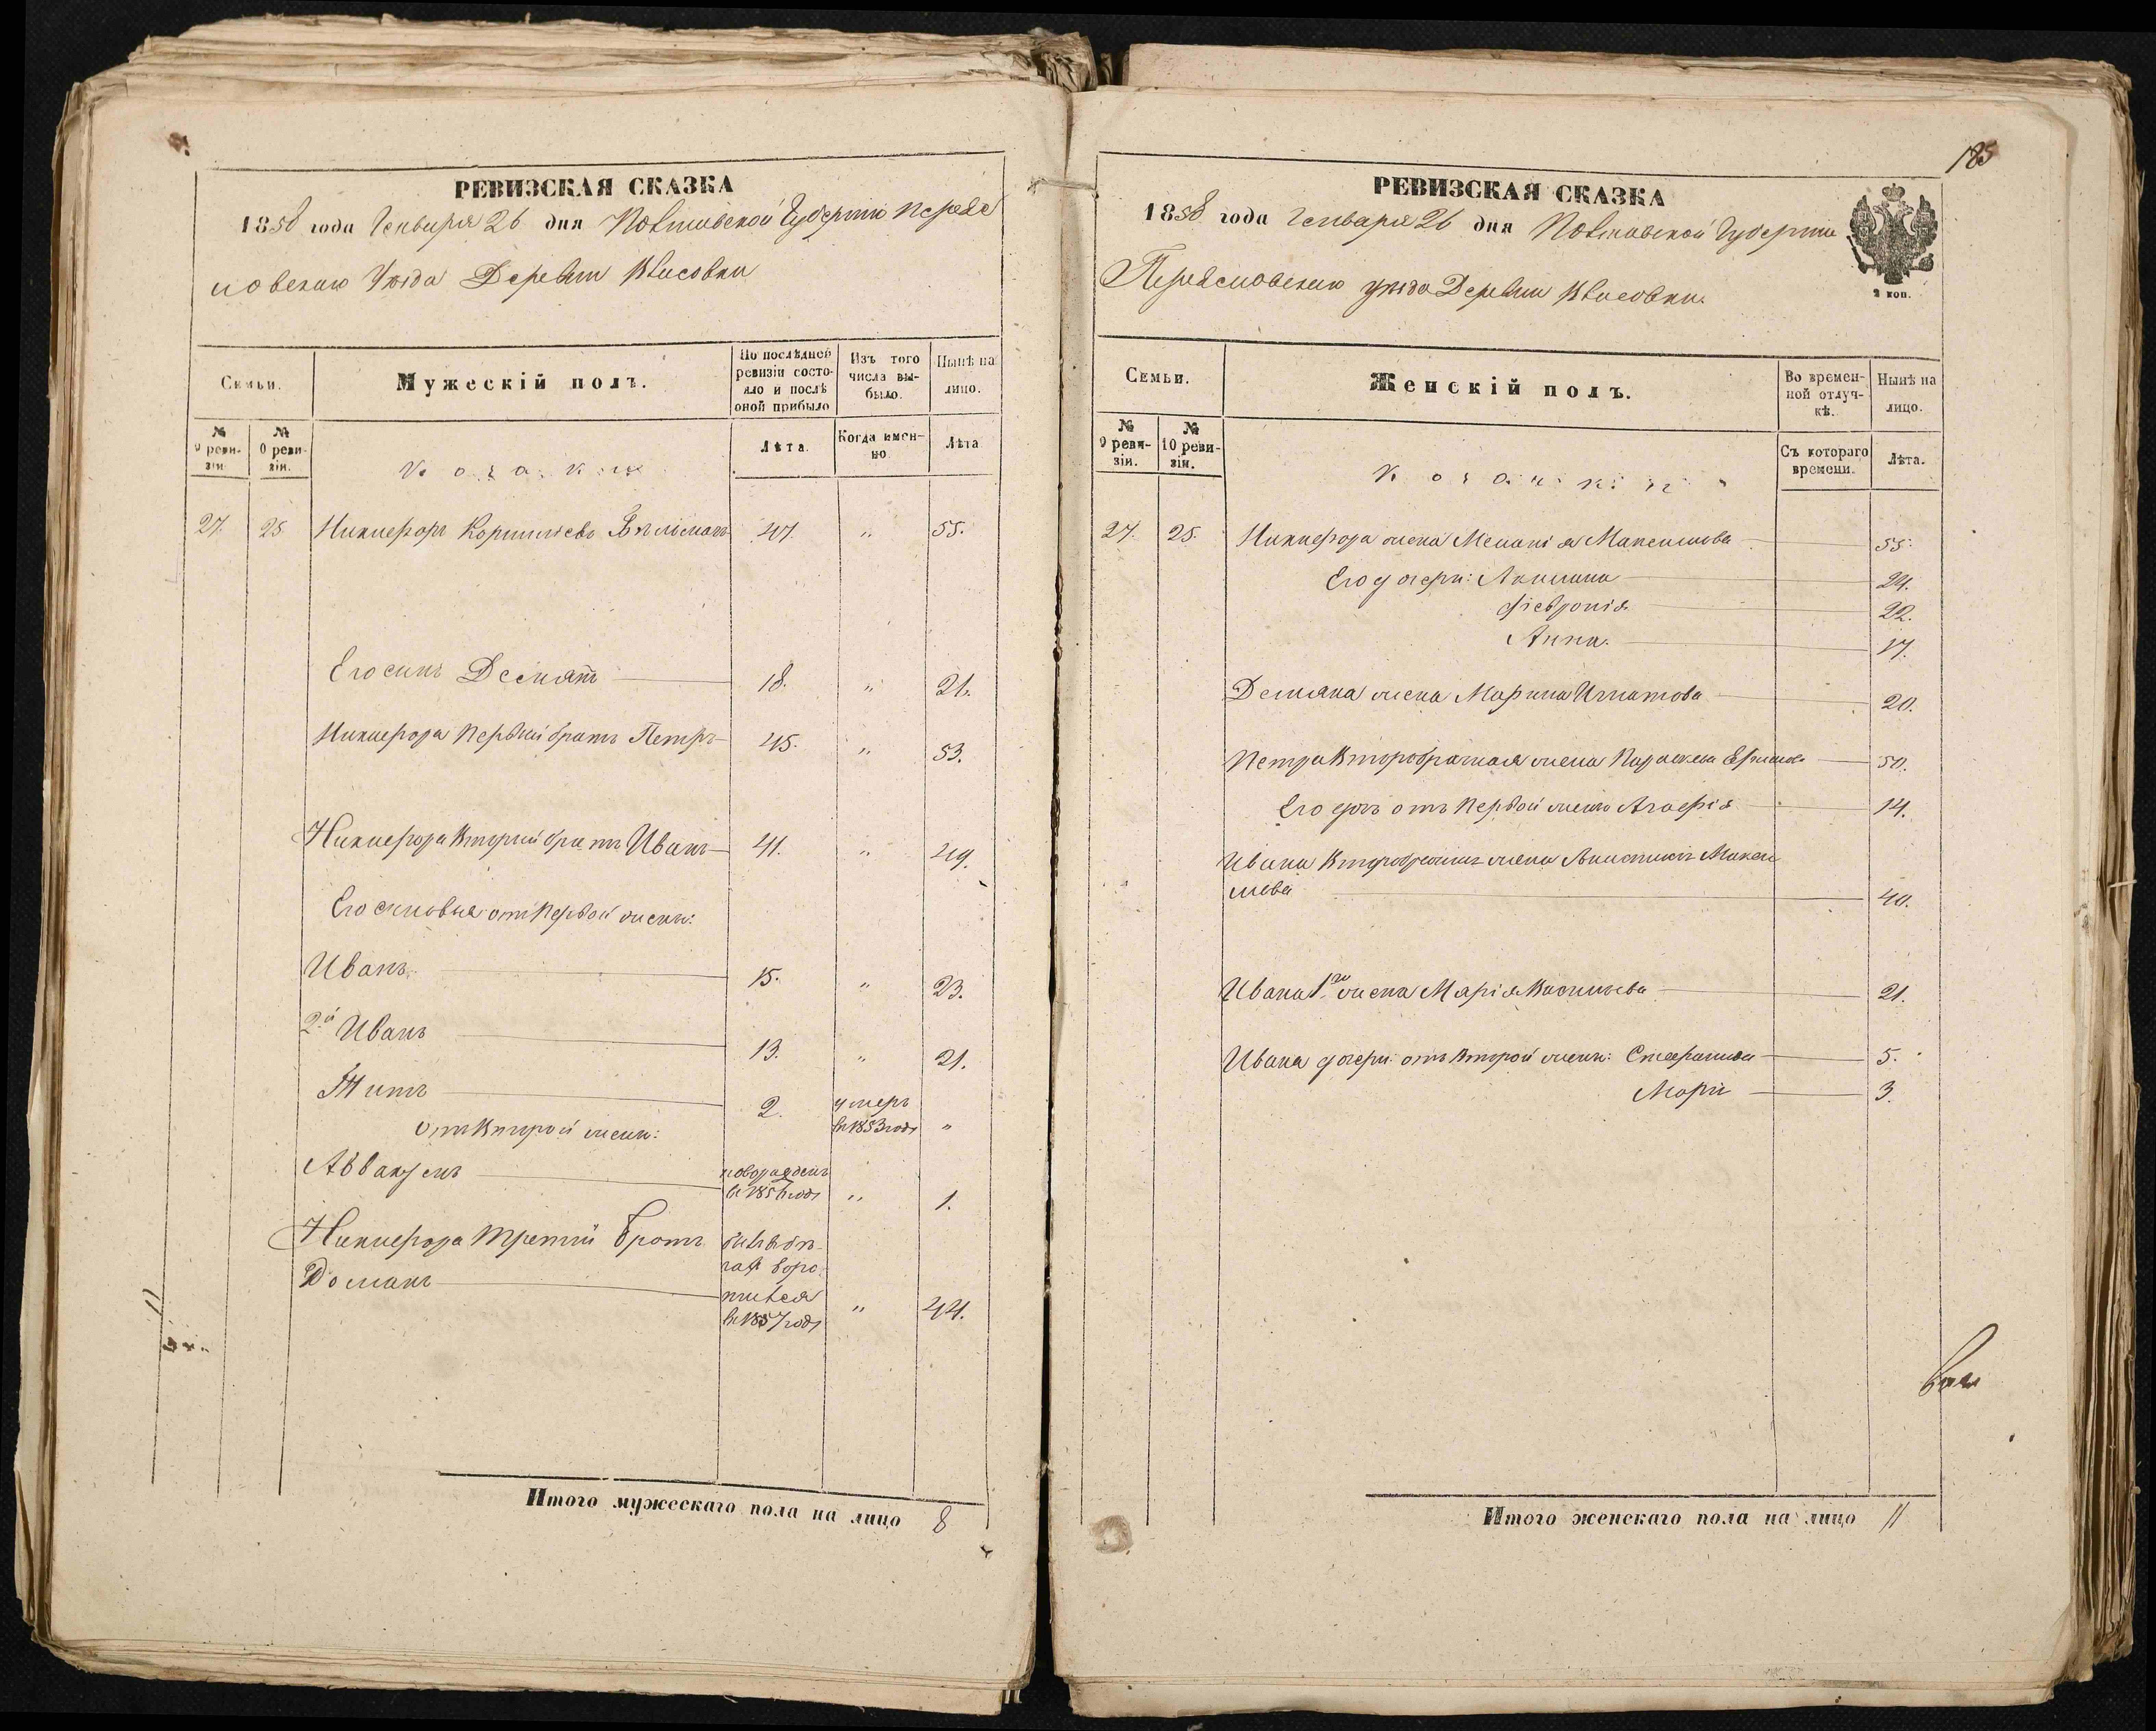 РЕВИЗСКАЯ СКАЗКА
1858 года Генваря 26 дня Полтавской Губерніи Переяс
ловскаго Уѣзда Деревни
Семьи.
Мужескій полъ.
По послѣдней ревизіи состояло и послѣ оной прибыло
Изъ того числа выбыло.
Нынѣ на лицо.
№ 9 ревизіи.
№ 10 ревизіи.
Козаки
Лѣта.
Когда именно
Лѣта
27. 25 Никифоръ Корнилїевъ 47. " 55.
Его сынъ Демянъ 18. " 26.
Никифора Первый братъ Петръ 45. " 53.
Никифора Вторый братъ Иванъ 41. " 49.
Его сыновья отъ Первой жены:
Иванъ. 15. " 23.
2й Иванъ 13. " 21.
Титъ 2. умеръ въ 1853 годѣ "
отъ Второй жены:
Аввакумъ новорожденъ въ 1856 годѣ " 1.
Никифора Третій братъ
Романъ въ 1857 годѣ " 44.
Итого мужескаго пола на лицо 8
185
РЕВИЗСКАЯ СКАЗКА
1858 года Генваря 26 дня Полтавской Губерніи
Переясловскаго уѣзда Деревни
2 коп.
Семьи.
Женскій полъ.
Во временной отлучкѣ.
Нынѣ на лицо.
№ 9 ревизіи.
№ 10 ревизіи.
Козачки
Съ котораго времени.
Лѣта.
27. 25. Никифора жена Меланія Максимова 55.
Его дочери: Акилина 24.
Февронія 22.
Анна. 17.
Демяна жена Марина Игнатова 20.
Петра Второбрачная жена Параскева 50.
Его дочь отъ Первой жены Агафія 14.
Ивана Второбрачная жена Макси
мова 40.
Ивана 1го жена Марія Васильева 21.
Ивана дочери отъ Второй жены: Стефанида 5.
Марія 3.
Итого женскаго пола на лицо 11